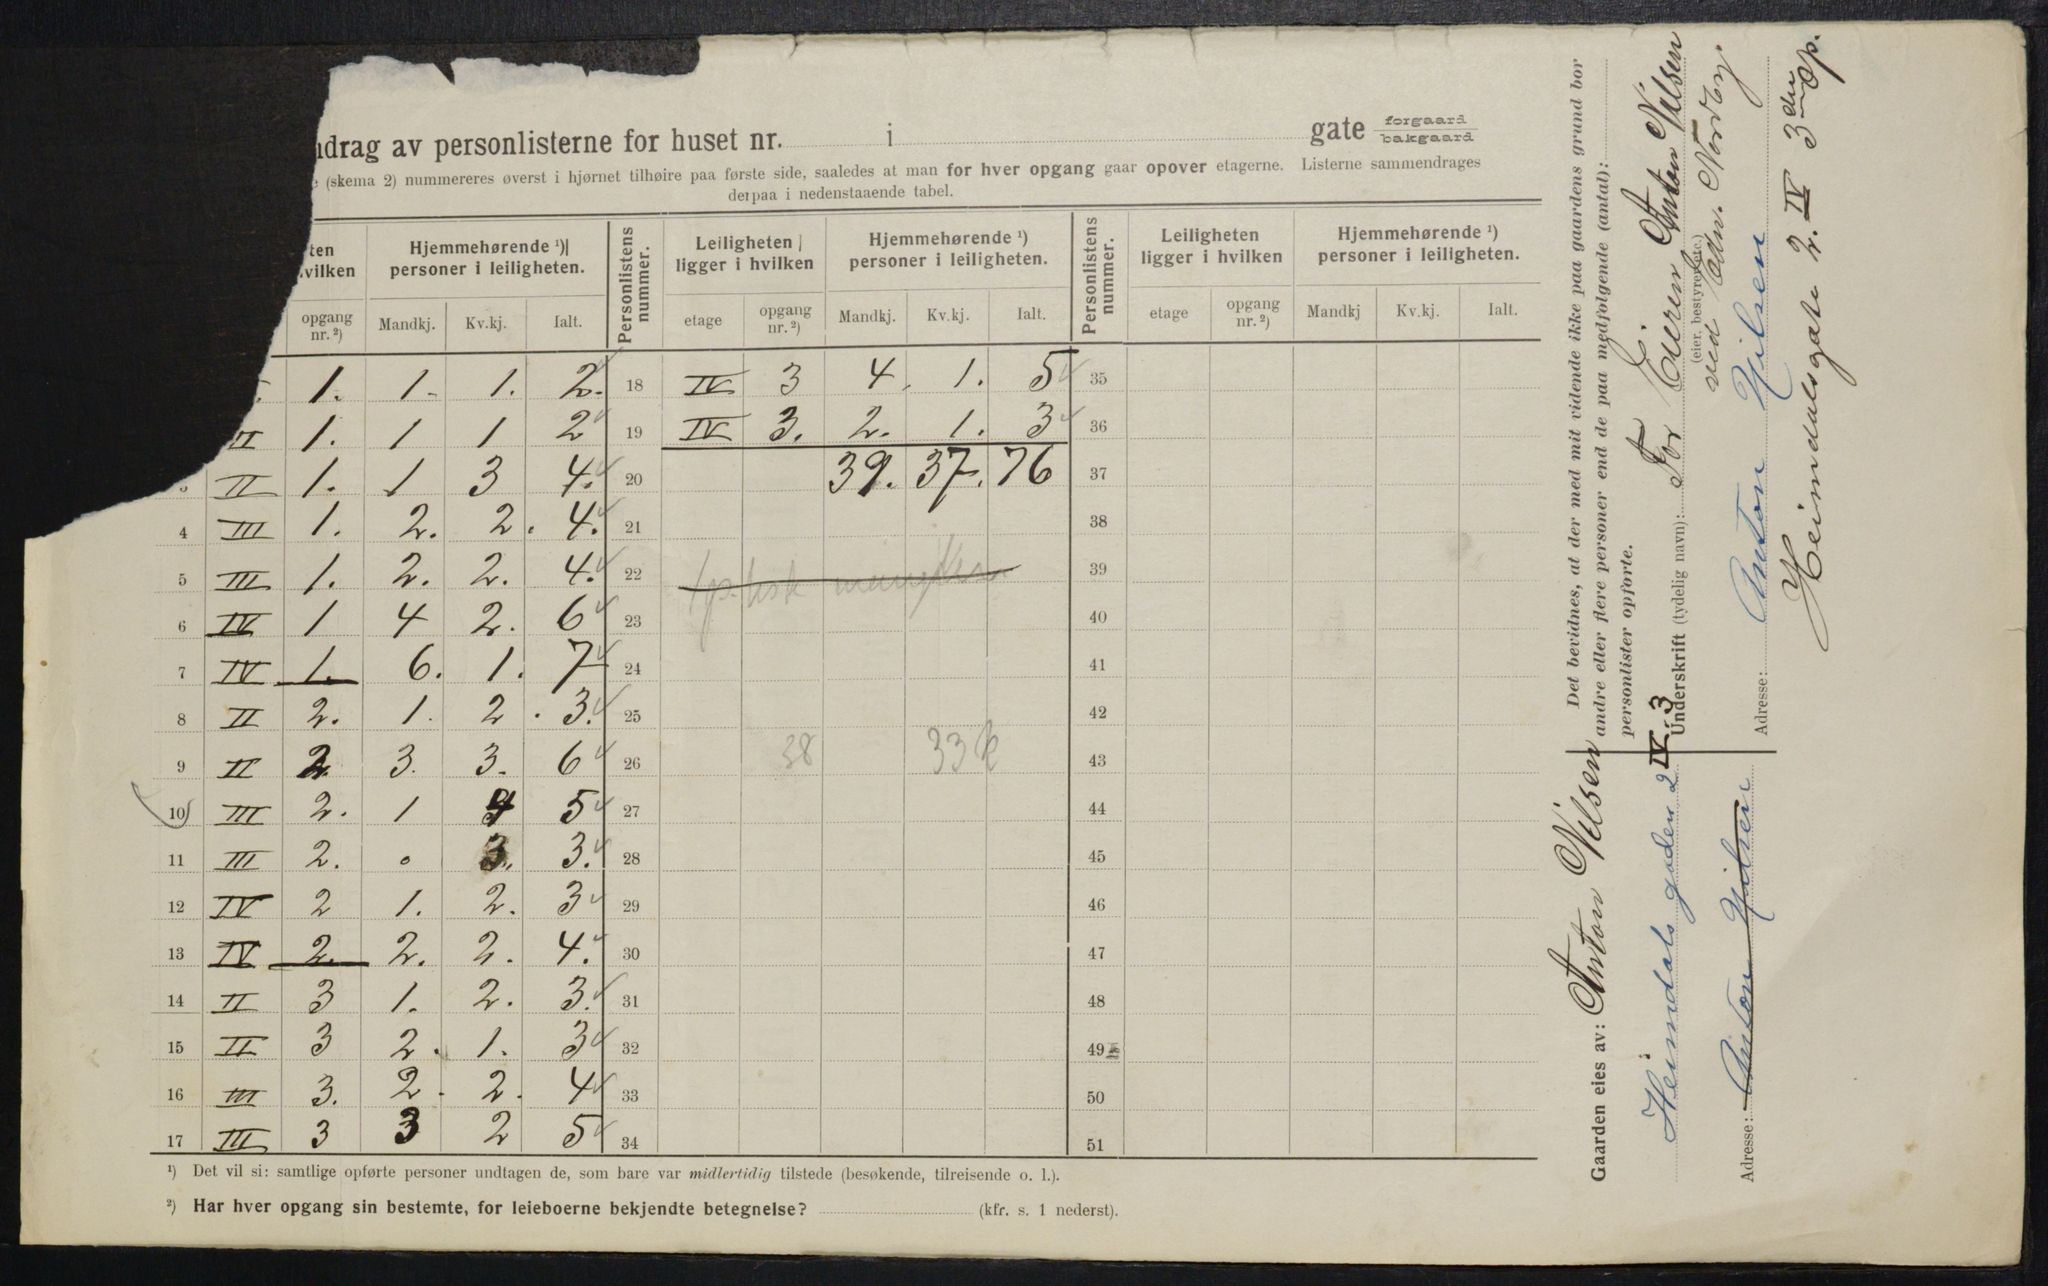 ndrag av personlisterne for huset nr. i gate forgaard bakgaard
(skema 2) nummereres øverst i hjørnet tilhøire paa første side, saaledes at man for hver opgang gaar opover etagerne. Listerne sammendrages
derpaa i nedenstaaende tabel.
ten
hvilken
Hjemmehørende ¹)
personer i leiligheten.
Personlistens
nummer.
Leiligheten
ligger i hvilken
Hjemmehørende ¹)
personer i leiligheten.
Personlistens
nummer.
Leiligheten
ligger i hvilken
Hjemmehørende ¹)
personer i leiligheten.
opgang nr. ²) Mandkj. Kv.kj. Ialt. etage opgang nr. ²) Mandkj. Kv.kj. Ialt. etage opgang nr. ²) Mandkj Kv.kj. Ialt.
1. 1. 1. 2. 18 IV 3 4. 1. 5 35
II 1. 1 1 2 19 IV 3. 2. 1. 3 36
3 II 1. 1 3 4. 20 39. 37. 76 37
4 III 1. 2. 2. 4. 21 38
5 III 1. 2. 2. 4. 22 39
6 IV 1 4 2. 6 23 40
7 IV 1. 6. 1. 7 24 41
8 II 2. 1. 2. 3. 25 42
9 II 2. 3. 3. 6 26 38 33 k 43
10 III 2. 1 4 5 27 44
11 III 2. 0 3. 3. 28 45
12 IV 2 1. 2. 3 29 46
13 IV 2. 2. 2. 4. 30 47
14 II 3 1. 2. 3. 31 48
15 II 3 2. 1. 3 32 49
16 III 3. 2. 2. 4 33 50
17 III 3 3 2 5 34 51
¹) Det vil si: samtlige opførte personer undtagen de, som bare var midlertidig tilstede (besøkende, tilreisende o. l.).
²) Har hver opgang sin bestemte, for leieboerne bekjendte betegnelse? (kfr. s. 1 nederst).
Det bevidnes, at der med mit vidende ikke paa gaardens grund bor
andre eller flere personer end de paa medfølgende (antal):
personlister opførte.
Underskrift (tydelig navn): For Eieren Anton Nilsen
(eier, bestyrer etc.)
ved Edv. Nordby.
Adresse: Anton Nilsen
Heimdalsgate 2. IV 3 dre Op.
Gaarden eies av: Anton Nilsen
Heimdals gaden 2 IV. 3
Adresse: Anton Nilsen